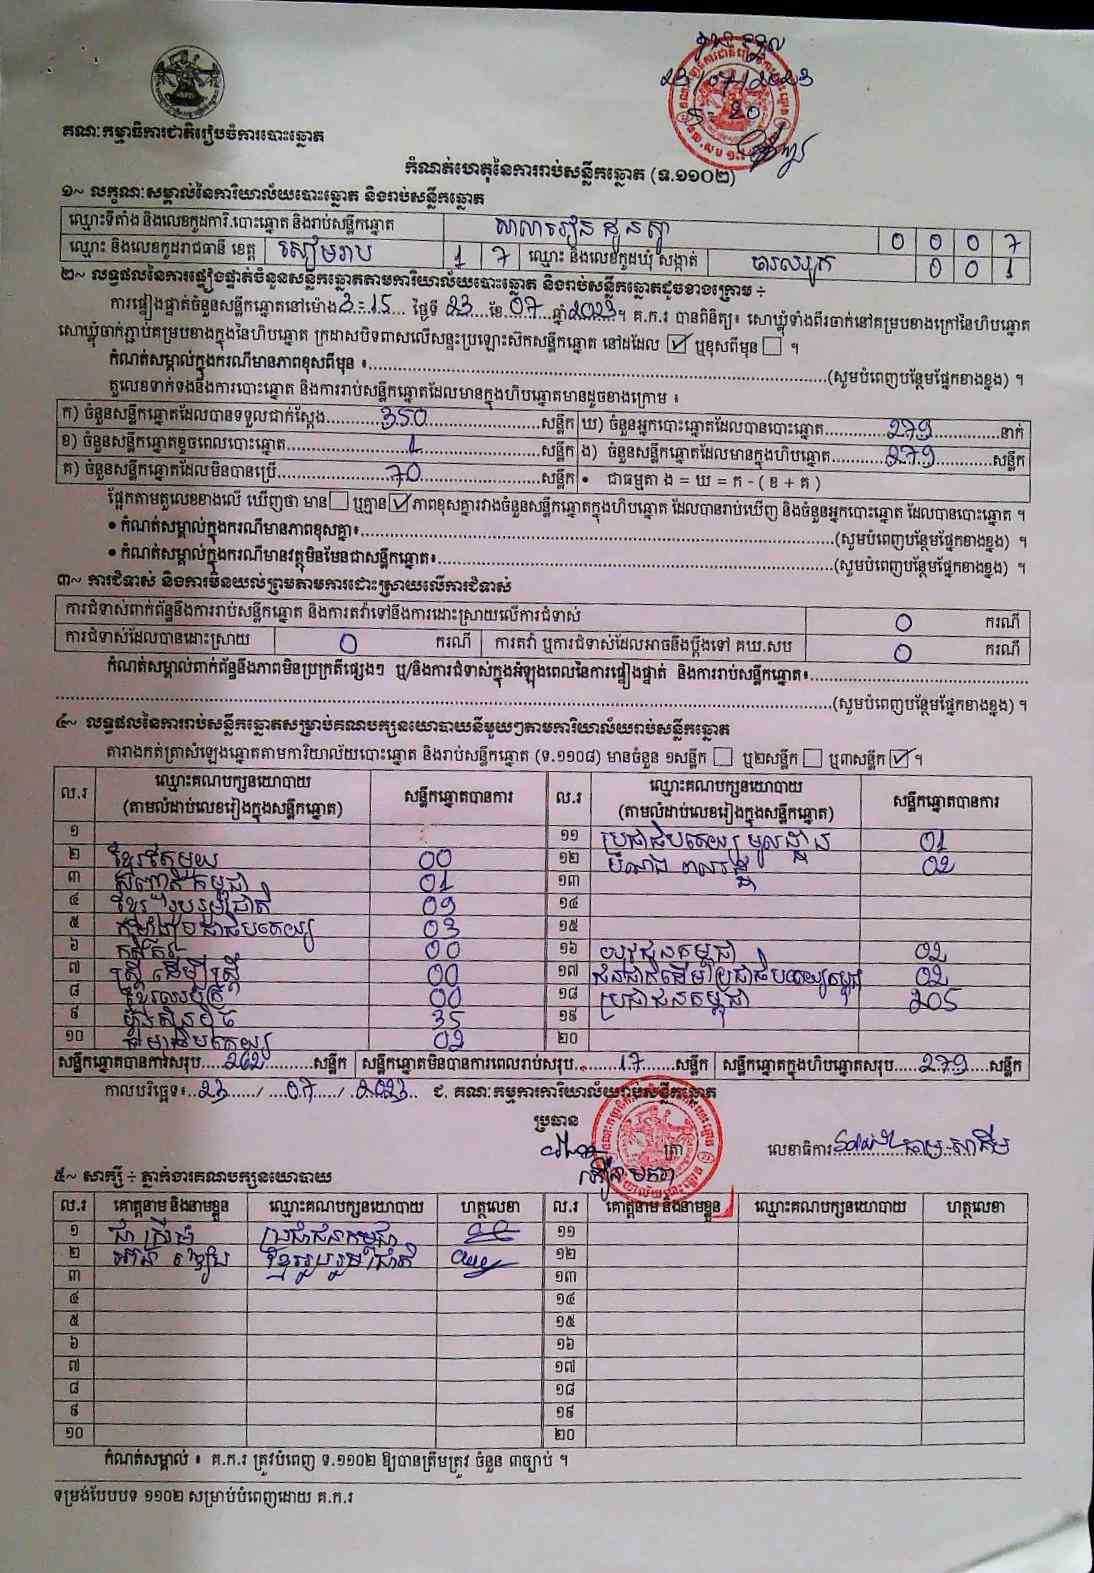 បានទទួល
23/07/2023
គណៈកម្មាធិការជាតិរៀបចំការបោះឆ្នោត
កំណត់ហេតុនៃការរាប់សន្លឹកឆ្នោត (ទ.១១០២)
១~ លក្ខណៈសម្គាល់នៃការិយាល័យបោះឆ្នោត និងរាប់សន្លឹកឆ្នោត
ឈ្មោះទីតាំង និងលេខកូដការិ.បោះឆ្នោត និងរាប់សន្លឹកឆ្នោត សាលារៀន ដូនស្វា 0 0 0 7
ឈ្មោះ និងលេខកូដរាជធានី ខេត្ត សៀមរាប 1 7 ឈ្មោះ និងលេខកូដឃុំ សង្កាត់ 0 0 1
២~ លទ្ធផលនៃការផ្ទៀងផ្ទាត់ចំនួនសន្លឹកឆ្នោតតាមការិយាល័យបោះឆ្នោត និងរាប់សន្លឹកឆ្នោតដូចខាងក្រោម ÷
ការផ្ទៀងផ្ទាត់ចំនួនសន្លឹកឆ្នោតនៅម៉ោង 3:15 ថ្ងៃទី 23 ខែ 07 ឆ្នាំ 2023 ។ គ.ក.រ បានពិនិត្យ៖ សោឃ្លុំទាំងពីរចាក់នៅគម្របខាងក្រៅនៃហិបឆ្នោត
សោឃ្លុំចាក់ភ្ជាប់គម្របខាងក្នុងនៃហិបឆ្នោត ក្រដាសបិទពាសលើសន្ទះប្រឡោះស៊កសន្លឹកឆ្នោត នៅដដែល ☑ ឬខុសពីមុន ☐ ។
កំណត់សម្គាល់ក្នុងករណីមានភាពខុសពីមុន ៖ (សូមបំពេញបន្ថែមផ្នែកខាងខ្នង) ។
តួលេខទាក់ទងនឹងការបោះឆ្នោត និងការរាប់សន្លឹកឆ្នោតដែលមានក្នុងហិបឆ្នោតមានដូចខាងក្រោម ៖
ក) ចំនួនសន្លឹកឆ្នោតដែលបានទទួលជាក់ស្ដែង 350 សន្លឹក ឃ) ចំនួនអ្នកបោះឆ្នោតដែលបានបោះឆ្នោត 279 នាក់
ខ) ចំនួនសន្លឹកឆ្នោតខូចពេលបោះឆ្នោត 1 សន្លឹក ង) ចំនួនសន្លឹកឆ្នោតដែលមានក្នុងហិបឆ្នោត 279 សន្លឹក
គ) ចំនួនសន្លឹកឆ្នោតដែលមិនបានប្រើ 70 សន្លឹក • ជាធម្មតា ង = ឃ = ក - ( ខ + គ )
ផ្អែកតាមតួលេខខាងលើ ឃើញថា មាន ☐ ឬគ្មាន ☑ ភាពខុសគ្នារវាងចំនួនសន្លឹកឆ្នោតក្នុងហិបឆ្នោត ដែលបានរាប់ឃើញ និងចំនួនអ្នកបោះឆ្នោត ដែលបានបោះឆ្នោត ។
• កំណត់សម្គាល់ក្នុងករណីមានភាពខុសគ្នា៖ (សូមបំពេញបន្ថែមផ្នែកខាងខ្នង) ។
• កំណត់សម្គាល់ក្នុងករណីមានវត្ថុមិនមែនជាសន្លឹកឆ្នោត៖ (សូមបំពេញបន្ថែមផ្នែកខាងខ្នង) ។
៣~ ការជំទាស់ និងការមិនយល់ព្រមតាមការដោះស្រាយលើការជំទាស់
ការជំទាស់ពាក់ព័ន្ធនឹងការរាប់សន្លឹកឆ្នោត និងការតវ៉ាទៅនឹងការដោះស្រាយលើការជំទាស់ 0 ករណី
ការជំទាស់ដែលបានដោះស្រាយ 0 ករណី ការតវ៉ា ឬការជំទាស់ដែលអាចនឹងប្ដឹងទៅ គឃ.សប 0 ករណី
កំណត់សម្គាល់ពាក់ព័ន្ធនឹងភាពមិនប្រក្រតីផ្សេងៗ ឬ/និងការជំទាស់ក្នុងអំឡុងពេលនៃការផ្ទៀងផ្ទាត់ និងការរាប់សន្លឹកឆ្នោត៖
(សូមបំពេញបន្ថែមផ្នែកខាងខ្នង) ។
៤~ លទ្ធផលនៃការរាប់សន្លឹកឆ្នោតសម្រាប់គណបក្សនយោបាយនីមួយៗតាមការិយាល័យរាប់សន្លឹកឆ្នោត
តារាងកត់ត្រាសំឡេងឆ្នោតតាមការិយាល័យបោះឆ្នោត និងរាប់សន្លឹកឆ្នោត (ទ.១១០៨) មានចំនួន ១សន្លឹក ☐ ឬ២សន្លឹក ☐ ឬ៣សន្លឹក ☑ ។
ល.រ ឈ្មោះគណបក្សនយោបាយ (តាមលំដាប់លេខរៀងក្នុងសន្លឹកឆ្នោត) សន្លឹកឆ្នោតបានការ ល.រ ឈ្មោះគណបក្សនយោបាយ (តាមលំដាប់លេខរៀងក្នុងសន្លឹកឆ្នោត) សន្លឹកឆ្នោតបានការ
១ ១១ ប្រជាធិបតេយ្យ មូលដ្ឋាន 01
២ ខ្មែរតែមួយ 00 ១២ 02
៣ សញ្ជាតិកម្ពុជា 01 ១៣
៤ ខ្មែររួបរួមជាតិ 09 ១៤
៥ កម្លាំងប្រជាធិបតេយ្យ 03 ១៥
៦ កសិករ 00 ១៦ យុវជនកម្ពុជា 02
៧ ស្ត្រីដើម្បីស្ត្រី 00 ១៧ 02
៨ 00 ១៨ ប្រជាជនកម្ពុជា 205
៩ ហ្វ៊ុនស៊ិនប៉ិច 35 ១៩
១០ ធម្មាធិបតេយ្យ 02 ២០
សន្លឹកឆ្នោតបានការសរុប 262 សន្លឹក សន្លឹកឆ្នោតមិនបានការពេលរាប់សរុប 17 សន្លឹក សន្លឹកឆ្នោតក្នុងហិបឆ្នោតសរុប 279 សន្លឹក
កាលបរិច្ឆេទ៖ 23 / 07 / 2023 ជ. គណៈកម្មការការិយាល័យរាប់សន្លឹកឆ្នោត
ប្រធាន
ត្រា លេខាធិការ
៥~ សាក្សី ÷ ភ្នាក់ងារគណបក្សនយោបាយ
ល.រ គោត្តនាម និងនាមខ្លួន ឈ្មោះគណបក្សនយោបាយ ហត្ថលេខា ល.រ គោត្តនាម និងនាមខ្លួន ឈ្មោះគណបក្សនយោបាយ ហត្ថលេខា
១ ប្រជាជនកម្ពុជា ១១
២ ខ្មែររួបរួមជាតិ ១២
៣ ១៣
៤ ១៤
៥ ១៥
៦ ១៦
៧ ១៧
៨ ១៨
៩ ១៩
១០ ២០
កំណត់សម្គាល់ ៖ គ.ក.រ ត្រូវបំពេញ ទ.១១០២ ឱ្យបានត្រឹមត្រូវ ចំនួន ៣ច្បាប់ ។
ទម្រង់បែបបទ ១១០២ សម្រាប់បំពេញដោយ គ.ក.រ